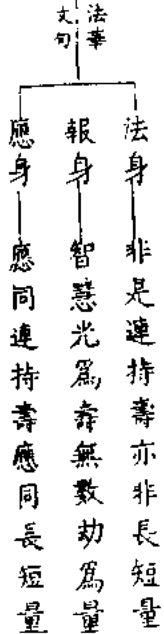 法華
文句
法身 非是連持壽亦非長短量
報身 智慧光爲壽無數劫爲量
應身 應同連持壽應同長短量